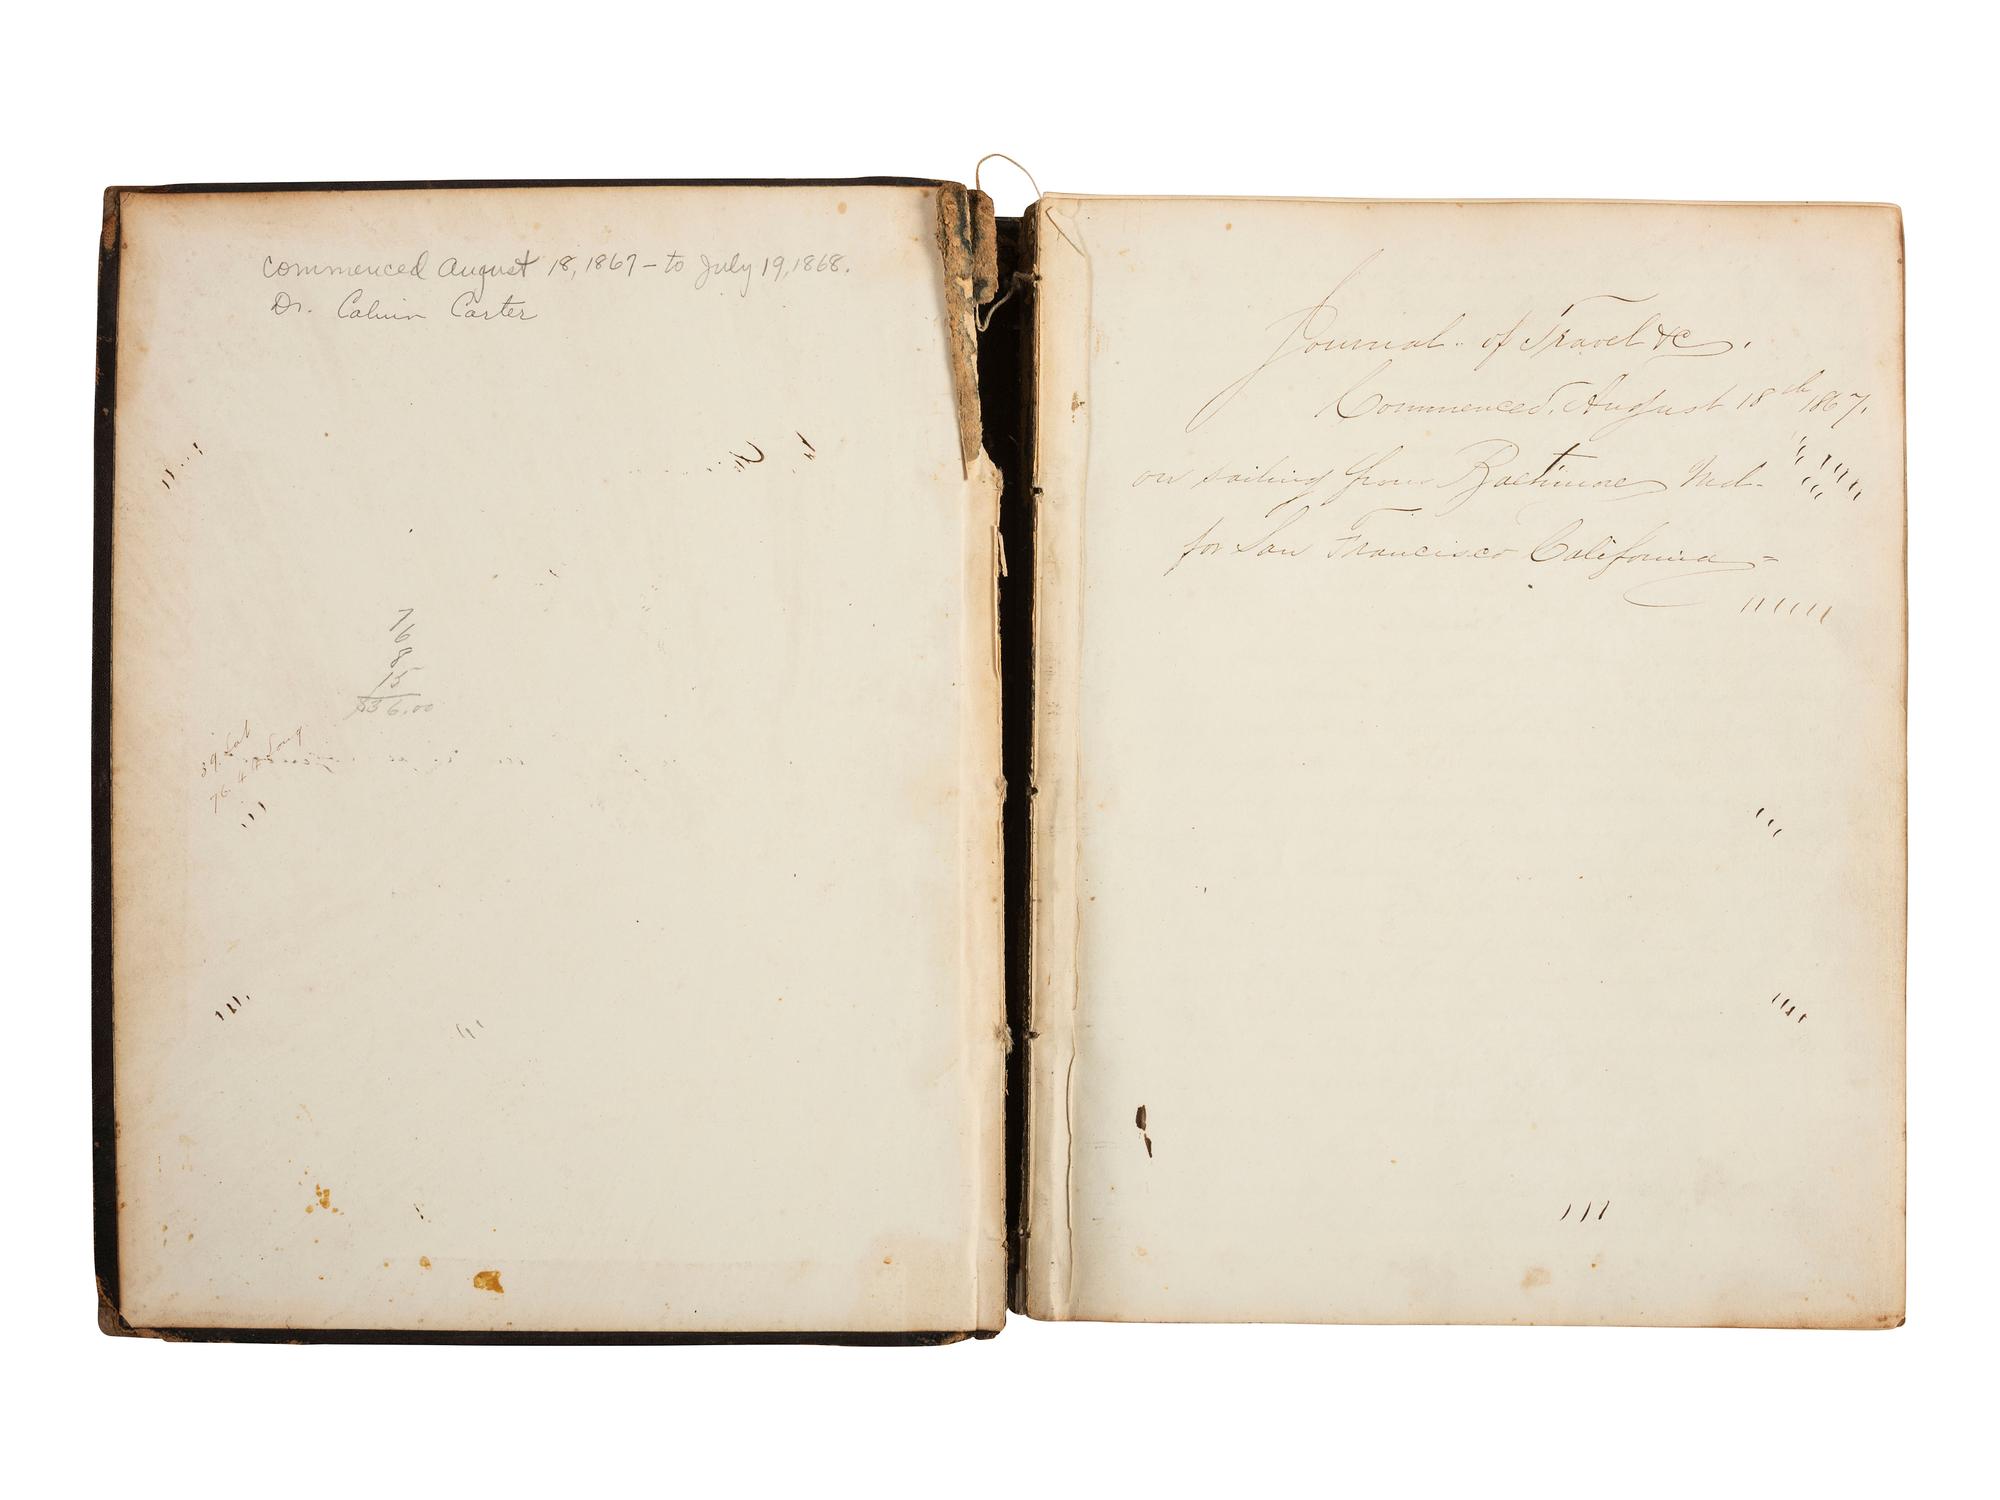 commenced August 18, 1867 – to July 19, 1868.
Dr. Calvin Carter
7
6
8
15
$36.00
39. Lat
76. 4 Long
Journal. of Travel &c.
Commenced. August 18th 1867.
on sailing from Baltimore Md.
for San Francisco California =